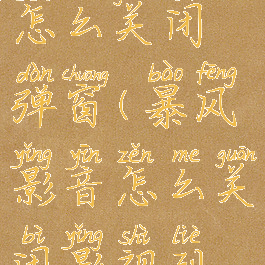 怎么关闭
dàn chuāng bào fēng
弹窗(暴风
yǐng yīn zěn me guān
影音怎么关
bì yǐng shì liè
闭影视列